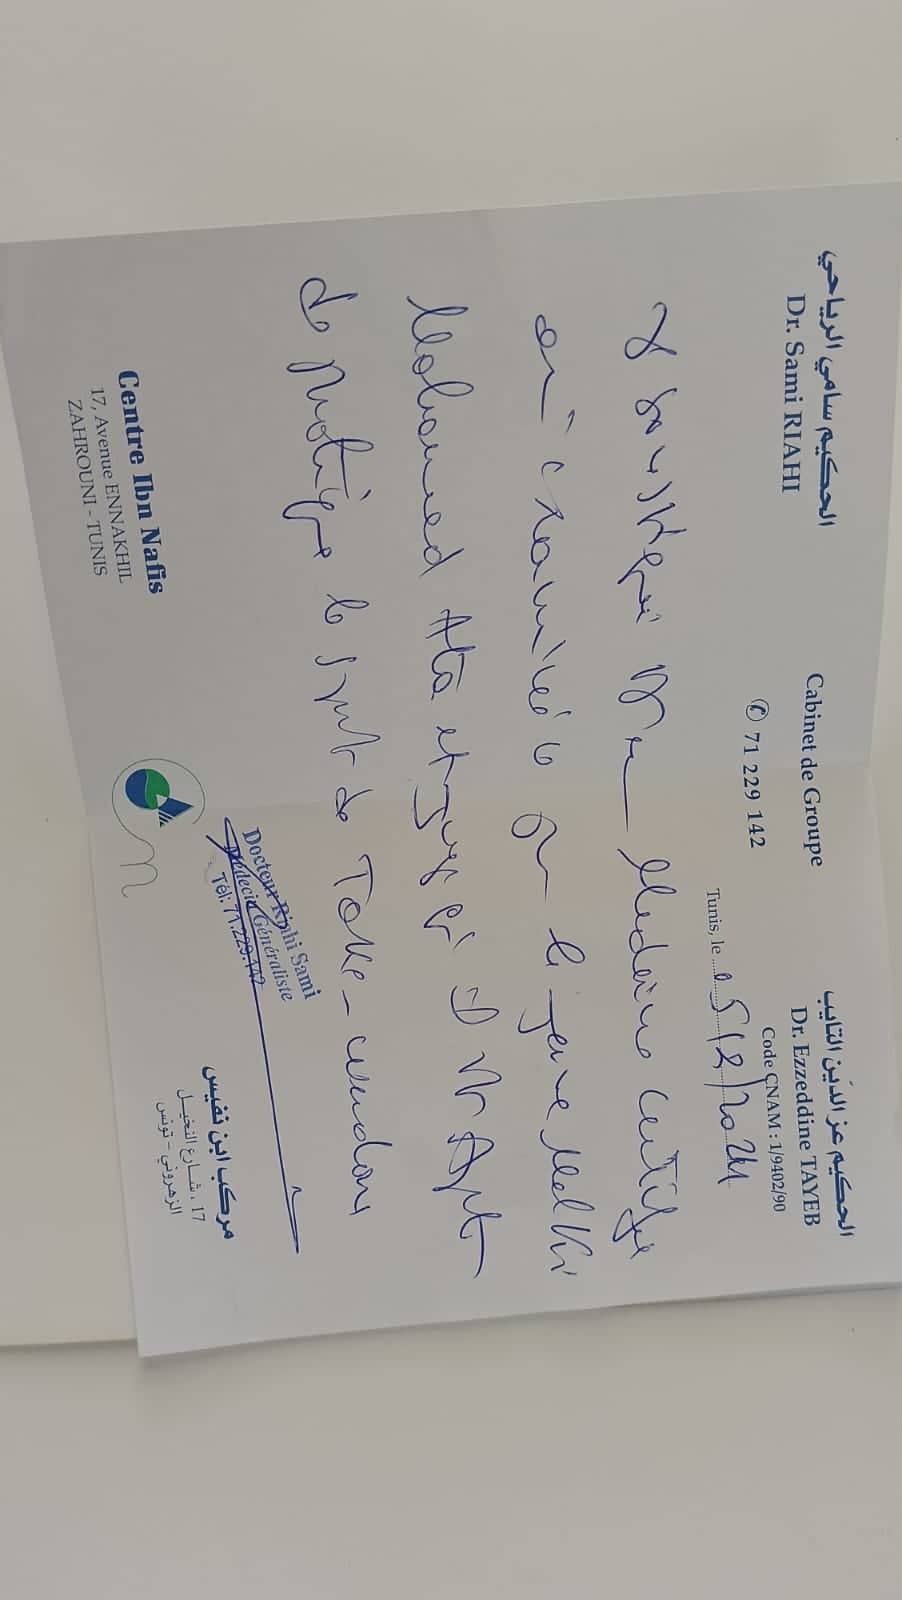 الحكيم سامي الرياحي
Dr. Sami RIAHI
Cabinet de Groupe
✆ 71 229 142
الحكيم عز الدين التايب
Dr. Ezzeddine TAYEB
Code CNAM : 1/9402/90
Tunis, le 05/2/2024
Je soussigné Dr en Médecine certifie
avoir examiné le jeune Melki
Mohamed Ata et juge qu'il est Apte
de pratiquer le sport de Take-wendou
Docteur Riahi Sami
Médecin Généraliste
Tél: 71.229.142
Centre Ibn Nafis
17, Avenue ENNAKHIL
ZAHROUNI - TUNIS
مركب ابن نفيس
17 ، شارع النخيل
الزهروني - تونس